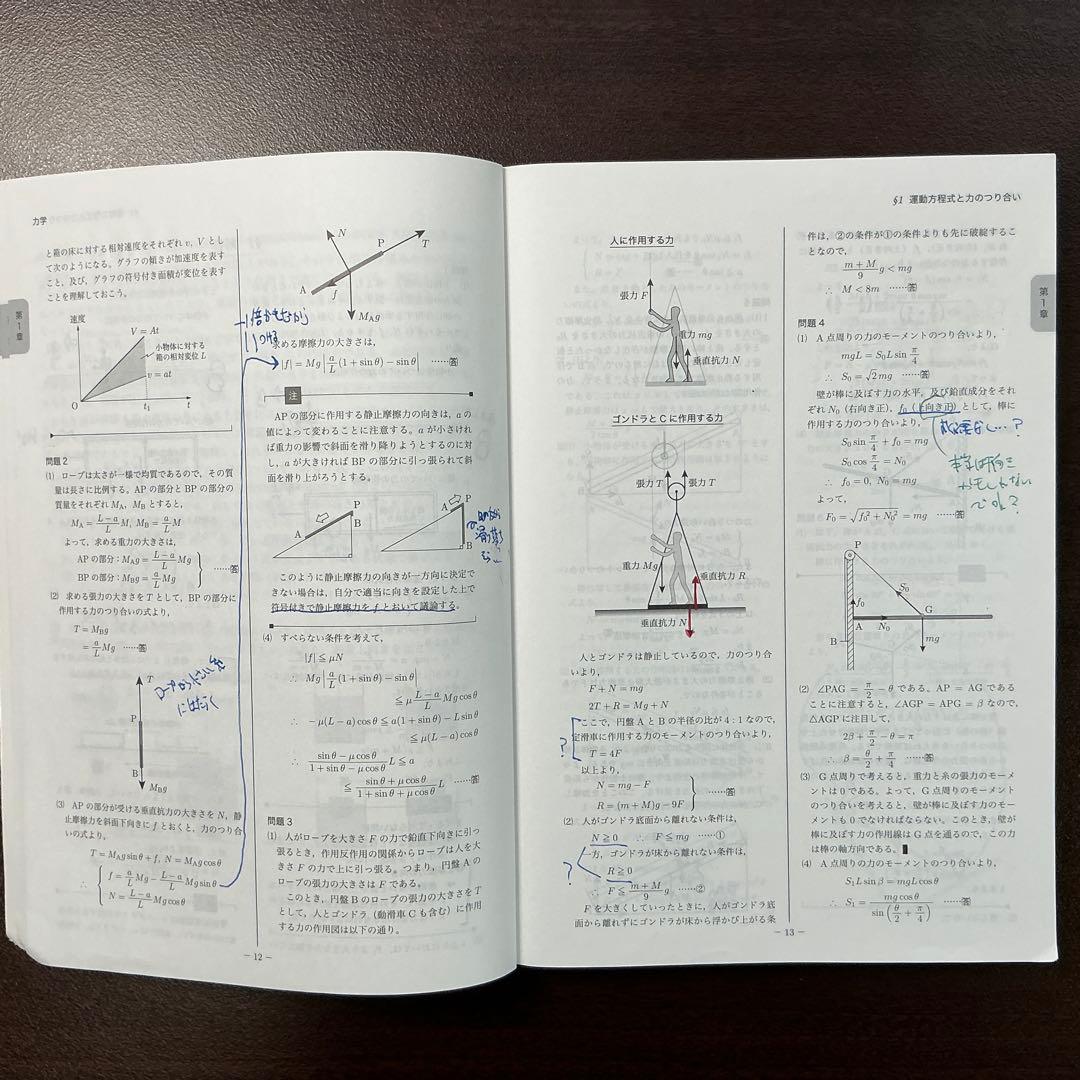 力学
と箱の床に対する相対速度をそれぞれ v, V とし
て次のようになる。グラフの傾きが加速度を表す
こと、及び、グラフの符号付き面積が変位を表す
ことを理解しておこう。
速度
V = At
小物体に対する
箱の相対変位 L
v = at
O
t₁
第1章
問題 2
(1) ロープは太さが一様で均質であるので、その質
量は長さに比例する。AP の部分と BP の部分の
質量をそれぞれ M_A, M_B とすると、
M_A = (L−a)/L M, M_B = a/L M
よって、求める重力の大きさは、
AP の部分：M_A g = (L−a)/L Mg
BP の部分：M_B g = a/L Mg ……答
(2) 求める張力の大きさを T として、BP の部分に
作用する力のつり合いの式より、
T = M_B g
= a/L Mg ……答
T
P
B
M_B g
(3) AP の部分が受ける垂直抗力の大きさを N、静
止摩擦力を斜面下向きに f とおくと、力のつり合
いの式より、
T = M_A g sin θ + f, N = M_A g cos θ
∴ f = a/L Mg − (L−a)/L Mg sin θ
N = (L−a)/L Mg cos θ
N
P
T
A
f
M_A g
求める摩擦力の大きさは、
|f| = Mg |a/L (1 + sin θ) − sin θ| ……答
注
AP の部分に作用する静止摩擦力の向きは、a の
値によって変わることに注意する。a が小さけれ
ば重力の影響で斜面を滑り降りようとするのに対
し、a が大きければ BP の部分に引っ張られて斜
面を滑り上がろうとする。
P
A
B
P
A
B
このように静止摩擦力の向きが一方向に決定で
きない場合は、自分で適当に向きを設定した上で
符号付きで静止摩擦力を f とおいて議論する。
(4) すべらない条件を考えて、
|f| ≦ μN
∴ Mg |a/L (1 + sin θ) − sin θ|
≦ μ (L−a)/L Mg cos θ
∴ −μ(L−a) cos θ ≦ a(1 + sin θ) − L sin θ
≦ μ(L−a) cos θ
∴ (sin θ − μ cos θ)/(1 + sin θ − μ cos θ) L ≦ a
≦ (sin θ + μ cos θ)/(1 + sin θ + μ cos θ) L ……答
問題 3
(1) 人がロープを大きさ F の力で鉛直下向きに引っ
張るとき、作用反作用の関係からロープは人を大
きさ F の力で上に引っ張る。つまり、円盤 A の
ロープの張力の大きさは F である。
このとき、円盤 B のロープの張力の大きさを T
として、人とゴンドラ（動滑車 C も含む）に作用
する力の作用図は以下の通り。
− 12 −
§1 運動方程式と力のつり合い
人に作用する力
張力 F
重力 mg
垂直抗力 N
ゴンドラと C に作用する力
張力 T
張力 T
重力 Mg
垂直抗力 R
垂直抗力 N
人とゴンドラは静止しているので、力のつり合
いより、
F + N = mg
2T + R = Mg + N
?
ここで、円盤 A と B の半径の比が 4 : 1 なので、
定滑車に作用する力のモーメントのつり合いより、
T = 4F
以上より、
N = mg − F
R = (m + M)g − 9F ……答
(2) 人がゴンドラ底面から離れない条件は、
N ≧ 0 ∴ F ≦ mg ……①
一方、ゴンドラが床から離れない条件は、
?
R ≧ 0
∴ F ≦ (m+M)/9 g ……②
F を大きくしていったときに、人がゴンドラ底
面から離れずにゴンドラが床から浮かび上がる条
件は、②の条件が①の条件よりも先に破綻するこ
となので、
(m+M)/9 g < mg
∴ M < 8m ……答
第1章
問題 4
(1) A 点周りの力のモーメントのつり合いより、
mgL = S₀L sin π/4
∴ S₀ = √2 mg ……答
壁が棒に及ぼす力の水平、及び鉛直成分をそれ
ぞれ N₀（右向き正）, f₀（上向き正）として、棒に
作用する力のつり合いより、
S₀ sin π/4 + f₀ = mg
S₀ cos π/4 = N₀
∴ f₀ = 0, N₀ = mg
よって、
F₀ = √(f₀² + N₀²) = mg ……答
P
S₀
f₀
G
A
N₀
B
mg
(2) ∠PAG = π/2 − θ である。AP = AG である
ことに注意すると、∠AGP = APG = β なので、
△AGP に注目して、
2β + π/2 − θ = π
∴ β = θ/2 + π/4 ……答
(3) G 点周りで考えると、重力と糸の張力のモーメ
ントは 0 である。よって、G 点周りのモーメント
のつり合いを考えると、壁が棒に及ぼす力のモー
メントも 0 でなければならない。このとき、壁が
棒に及ぼす力の作用線は G 点を通るので、この力
は棒の軸方向である。
(4) A 点周りの力のモーメントのつり合いより、
S₁L sin β = mgL cos θ
∴ S₁ = mg cos θ / sin(θ/2 + π/4) ……答
− 13 −